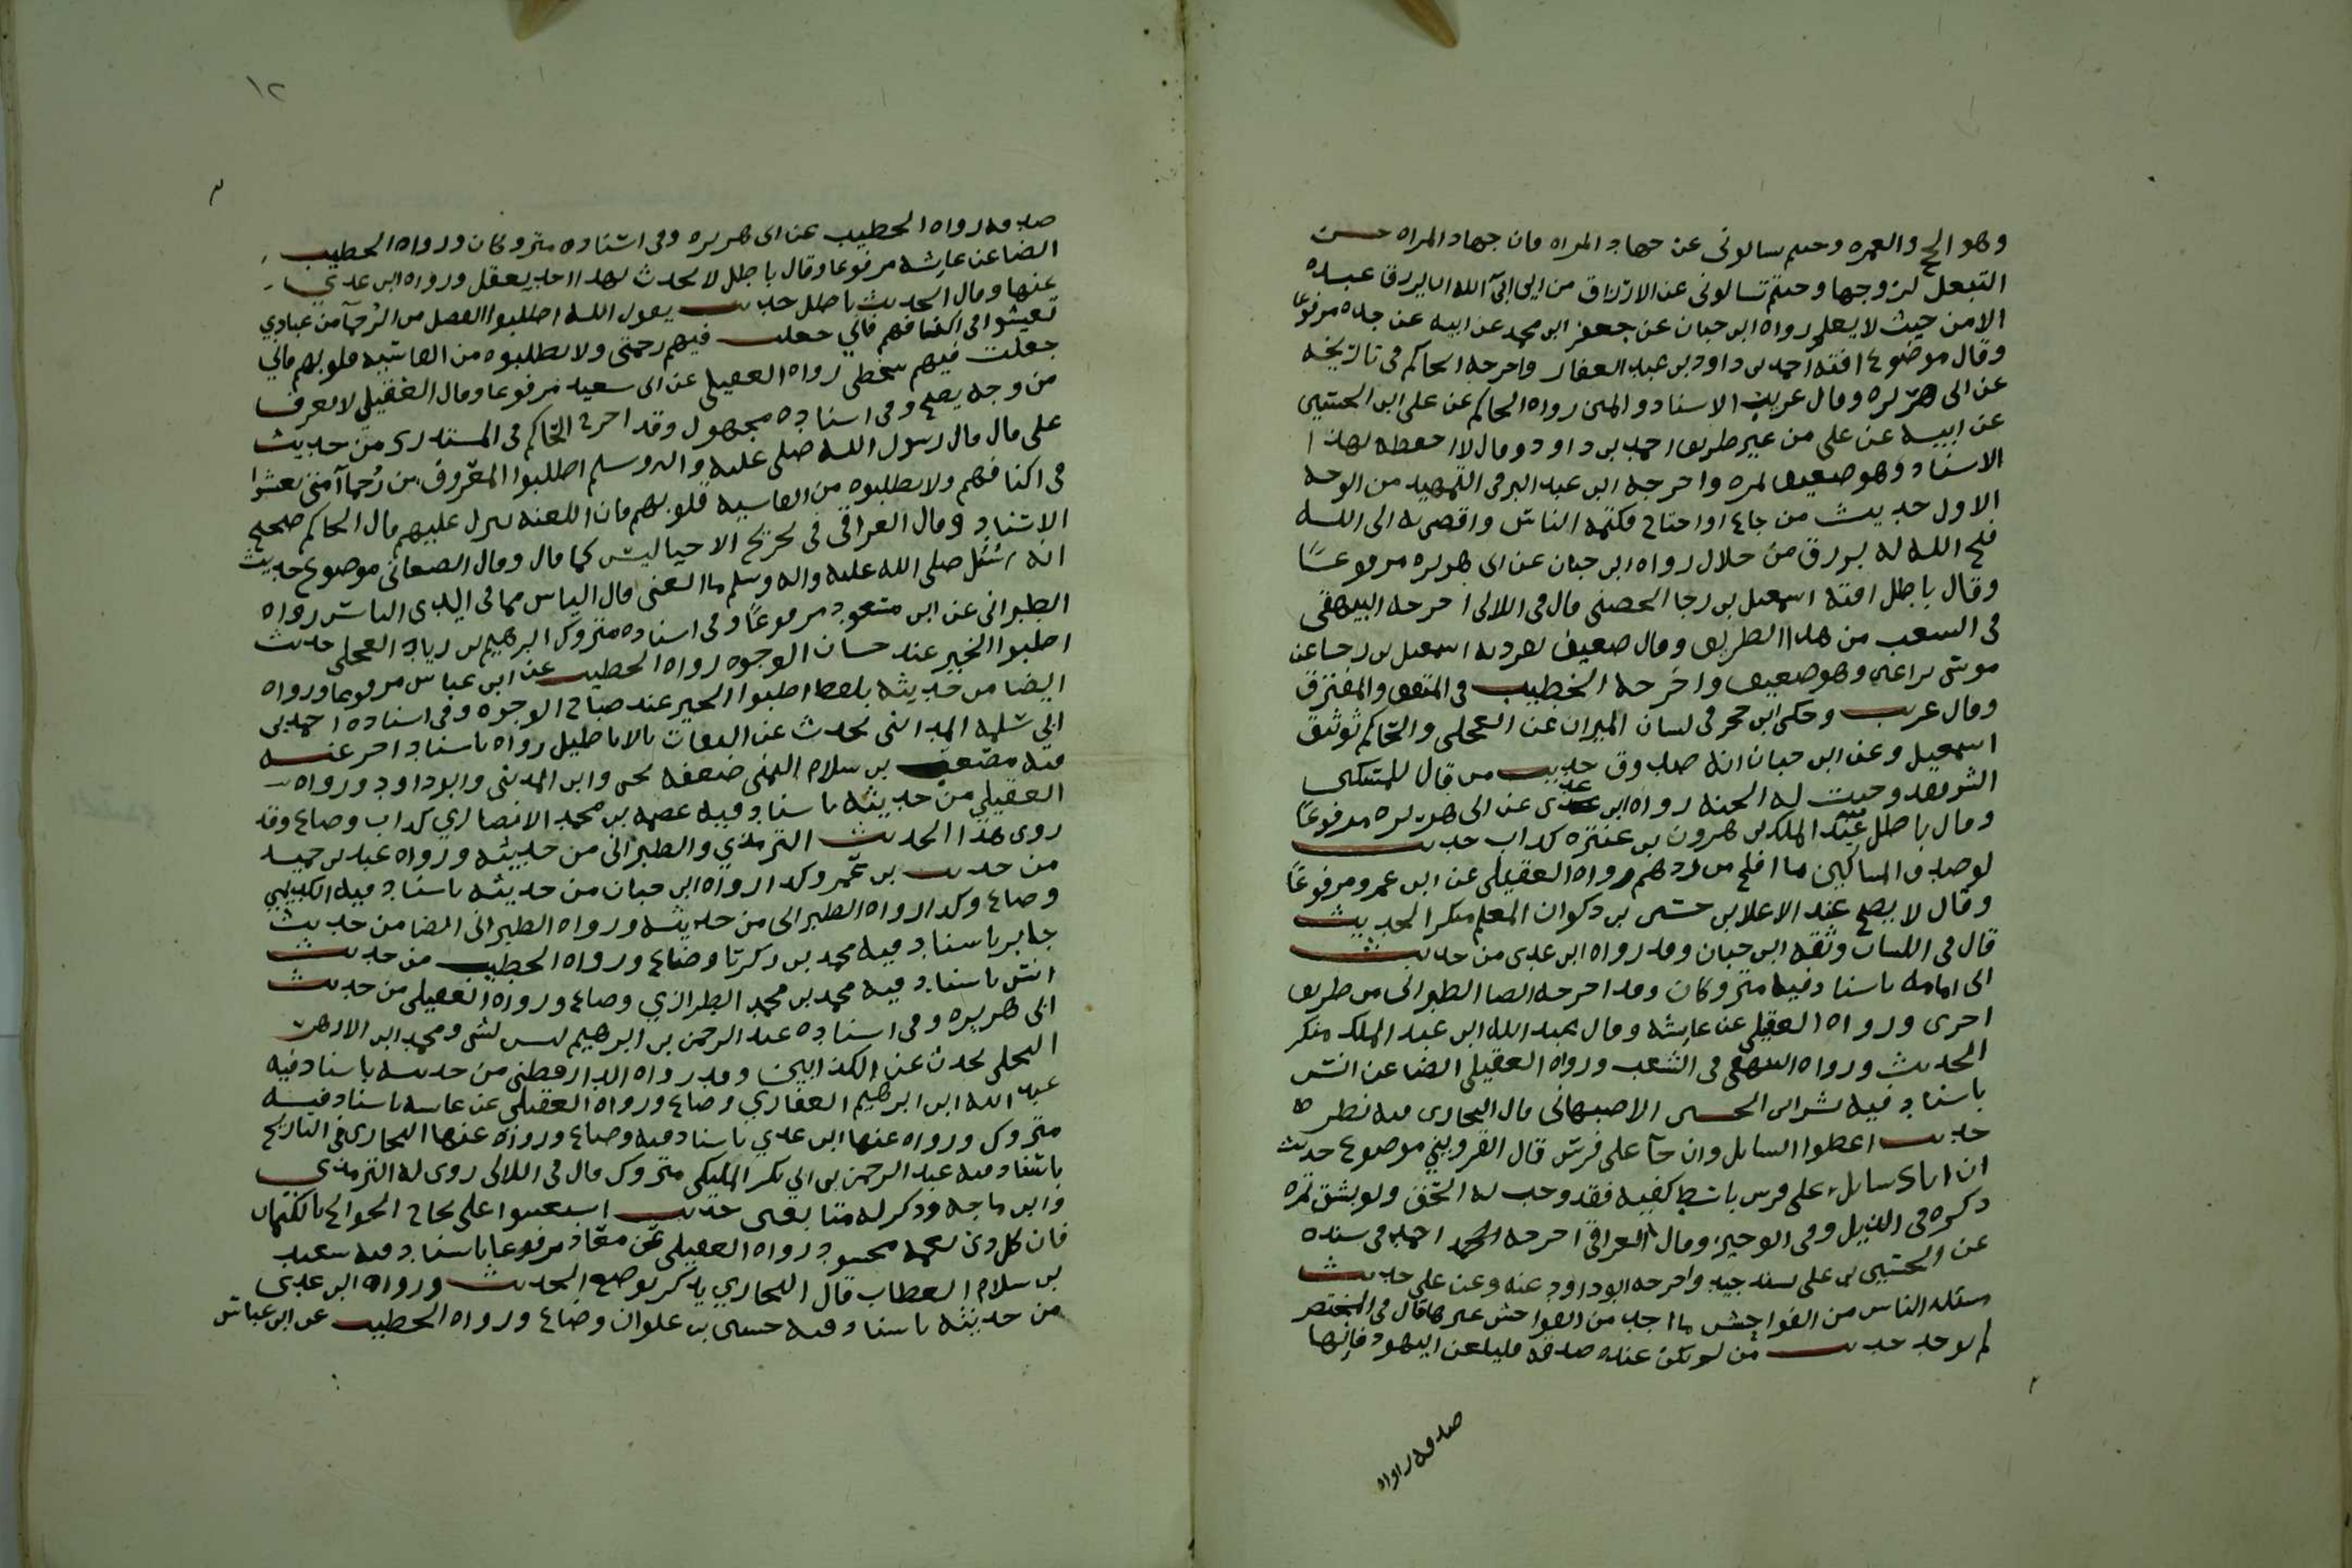 وهو الحج والعمره وجئتم تسالونى عن جهاد المراه فان جهاد المراه حسن
التبعل لزوجها وجئتم تسالونى عن الارزاق من اين ابى الله ان يرزق عبده
الا من حيث لا يعلم رواه ابن حبان عن جعفر ابن محمد عن ابيه عن جده مرفوعا
وقال موضوع افته احمد بن داود بن عبد الغفار واخرجه الحاكم فى تاريخه
عن ابى هريره وقال غريب الاسناد والمتن رواه الحاكم عن على ابن الحسين
عن ابيه عن على من غير طريق احمد بن داود وقال لا احفظه بهذا
الاسناد وهو ضعيف بمره واخرجه ابن عبد البر فى التمهيد من الوجه
الاول حديث من جاع او احتاج فكتمه الناس وافضى به الى الله
فتح الله له برزق من حلال رواه ابن حبان عن ابى هريره مرفوعًا
وقال باطل افته اسمعيل بن رجا الحصنى قال فى اللالى اخرجه البيهقى
فى الشعب من هذا الطريق وقال ضعيف تفرد به اسمعيل بن رجا عن
موسى بن اعين وهو ضعيف واخرجه الخطيب فى المتفق والمفترق
وقال غريب وحكى ابن حجر فى لسان الميزان عن العجلى والحاكم توثيق
اسمعيل وعن ابن حبان انه صدوق حديث من قال للمسكين
ابشر فقد وجبت له الجنه رواه ابن عدى عن ابى هريره مرفوعًا
وقال باطل عبد الملك بن هرون بن عنتره كذاب حديث
لو صدق المساكين ما افلح من ردهم رواه العقيلى عن ابن عمرو مرفوعًا
وقال لا يصح عبد الاعلا بن حسين بن ذكوان المعلم منكر الحديث
قال فى اللسان وثقه ابن حبان وقد رواه ابن عدى من حديث
ابى امامه باسناد فيه متروكان وقد اخرجه ايضا الطبرانى من طريق
اخرى ورواه العقيلى عن عايشه وقال عبد الله ابن عبد الملك منكر
الحديث ورواه البيهقى فى الشعب ورواه العقيلى ايضا عن انس
باسناد فيه بشر ابن الحسين الاصبهانى قال البخارى فيه نظر
حديث اعطوا السايل وان جآ على فرس قال القزوينى موضوع حديث
ان اتاك سايل على فرس باسط كفيه فقد وجب له الحق ولو بشق تمره
ذكره فى الذيل وفى الوجيز وقال العراقى اخرجه احمد فى مسنده
عن الحسين بن على بسند جيد واخرجه ابو داود عنه وعن على حديث
مسئله الناس من الفواحش ما احل من الفواحش غيرها قال فى المختصر
لم يوجد حديث من لم يكن عنده صدقه فليلعن اليهود فانها
صدقه رواه
١٢
صدقه رواه الخطيب عن ابى هريره وفى اسناده متروكان ورواه الخطيب
ايضا عن عايشه مرفوعا وقال باطل لا يحدث بهذا احد يعقل ورواه ابن عدي
عنها وقال الحديث باطل حديث يقول الله اطلبوا الفضل من الرحمآ من عبادي
تعيشوا فى اكنافهم فانى جعلت فيهم رحمتى ولا تطلبوه من القاسيه قلوبهم فانى
جعلت فيهم سخطى رواه العقيلى عن ابى سعيد مرفوعا وقال العقيلي لا يعرف
من وجه يصح وفى اسناده مجهول وقد اخرج الحاكم فى المستدرك من حديث
على قال قال رسول الله صلى عليه واله وسلم اطلبوا المعروف من رُحمآ امتى تعيشوا
فى اكنافهم ولا تطلبوه من القاسيه قلوبهم فان اللعنه تنزل عليهم قال الحاكم صحيح
الاسناد وقال العراقى فى تخريج الاحيا ليس كما قال وقال الصغانى موضوع حديث
انه سُئل صلى الله عليه واله وسلم ما الغنى قال الياس مما فى ايدى الناس رواه
الطبرانى عن ابن مسعود مرفوعًا وفى اسناده متروك ابرهيم بن زياد العجلى حديث
اطلبوا الخير عند حسان الوجوه رواه الخطيب عن ابن عباس مرفوعا ورواه
ايضا من حديثه بلفظ اطلبوا الخير عند صباح الوجوه وفى اسناده احمد بن
ابي سلمه المداينى يحدث عن الثقات بالاباطيل رواه باسناد اخر عنه
فيه مصعب بن سلام التميمى ضعفه يحى وابن المدينى وابو داود ورواه
العقيلي من حديثه باسناد فيه عصمه بن محمد الانصاري كذاب وضاع وقد
روى هذا الحديث الترمذي والطبرانى من حديثه ورواه عبد بن حميد
من حديث بن عمر وكذا رواه ابن حبان من حديثه باسناد فيه الكديمي
وضاع وكذا رواه الطبرانى من حديثه ورواه الطبرانى ايضا من حديث
جابر باسناد فيه محمد بن زكريا وضاع ورواه الخطيب من حديث
انس باسناد فيه محمد بن محمد الطرازي وضاع ورواه العقيلى من حديث
ابى هريره وفى اسناده عبد الرحمن بن ابرهيم ليس بشى ومحمد ابن الازهر
البلخى يحدث عن الكذابين وقد رواه الدارقطنى من حديثه باسناد فيه
عبد الله ابن ابرهيم الغفاري وضاع ورواه العقيلى عن عايشه باسناد فيه
متروك ورواه عنها ابن عدي باسناد فيه وضاع ورواه عنها البخارى فى التاريخ
باسناد فيه عبد الرحمن بن ابي بكر المليكى متروك قال فى اللالى روى له الترمذي
وابن ماجه وذكر له متابعين حديث استعينوا على نجاح الحوايج بالكتمان
فان كل ذى نعمه محسود رواه العقيلى عن معاذ مرفوعا باسناد فيه سعيد
بن سلام العطاب قال البخاري يذكر بوضع الحديث ورواه ابن عدى
من حديثه باسناد فيه حسين بن علوان وضاع ورواه الخطيب عن ابن عباس